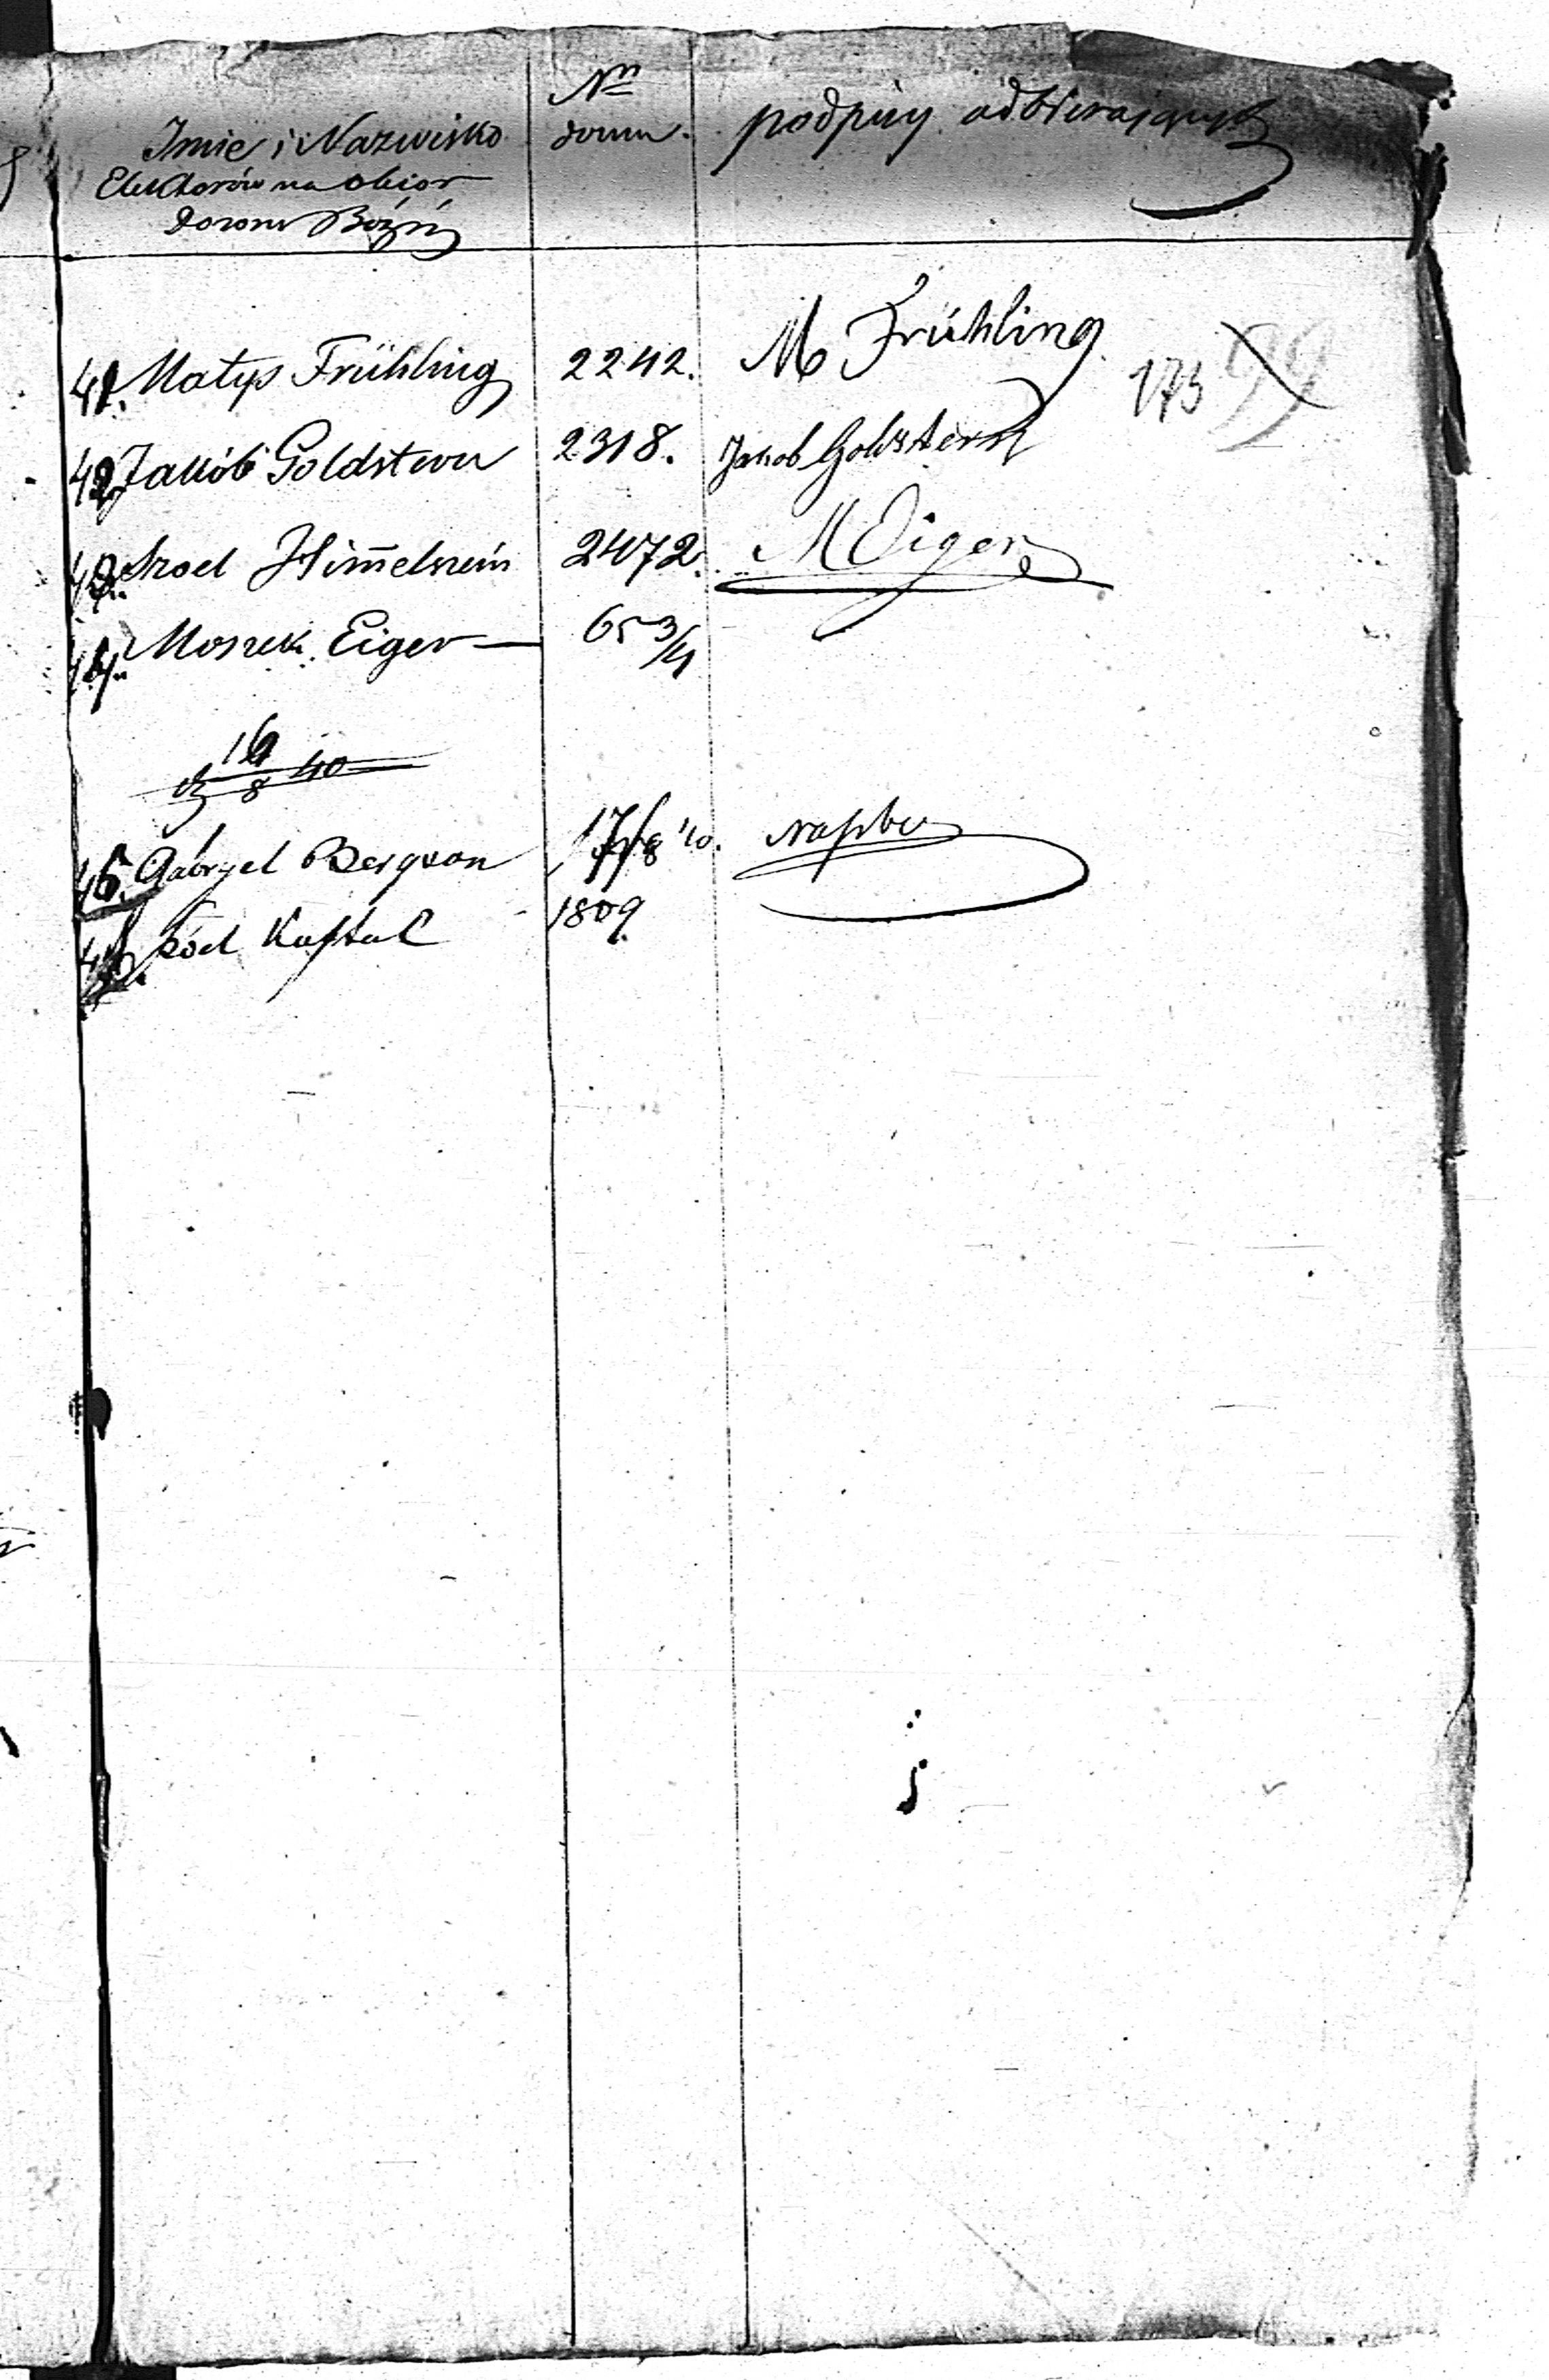 Imie i Nazwisko
Elektorów na obior
Dozoru Bóżn
Nr
domu.
podpisy odbierających
41. Matys Frühling 2242. M Frühling
173 99
42 Jakób Goldstern 2318. Jakob Goldstern
43. Sroel Himelszein 2472. M Eiger
44. Moszek Eiger — 653/4
16/8 40
45. Gabryel Bergson 17/8 40.
46. Józel Kaftal 1809.